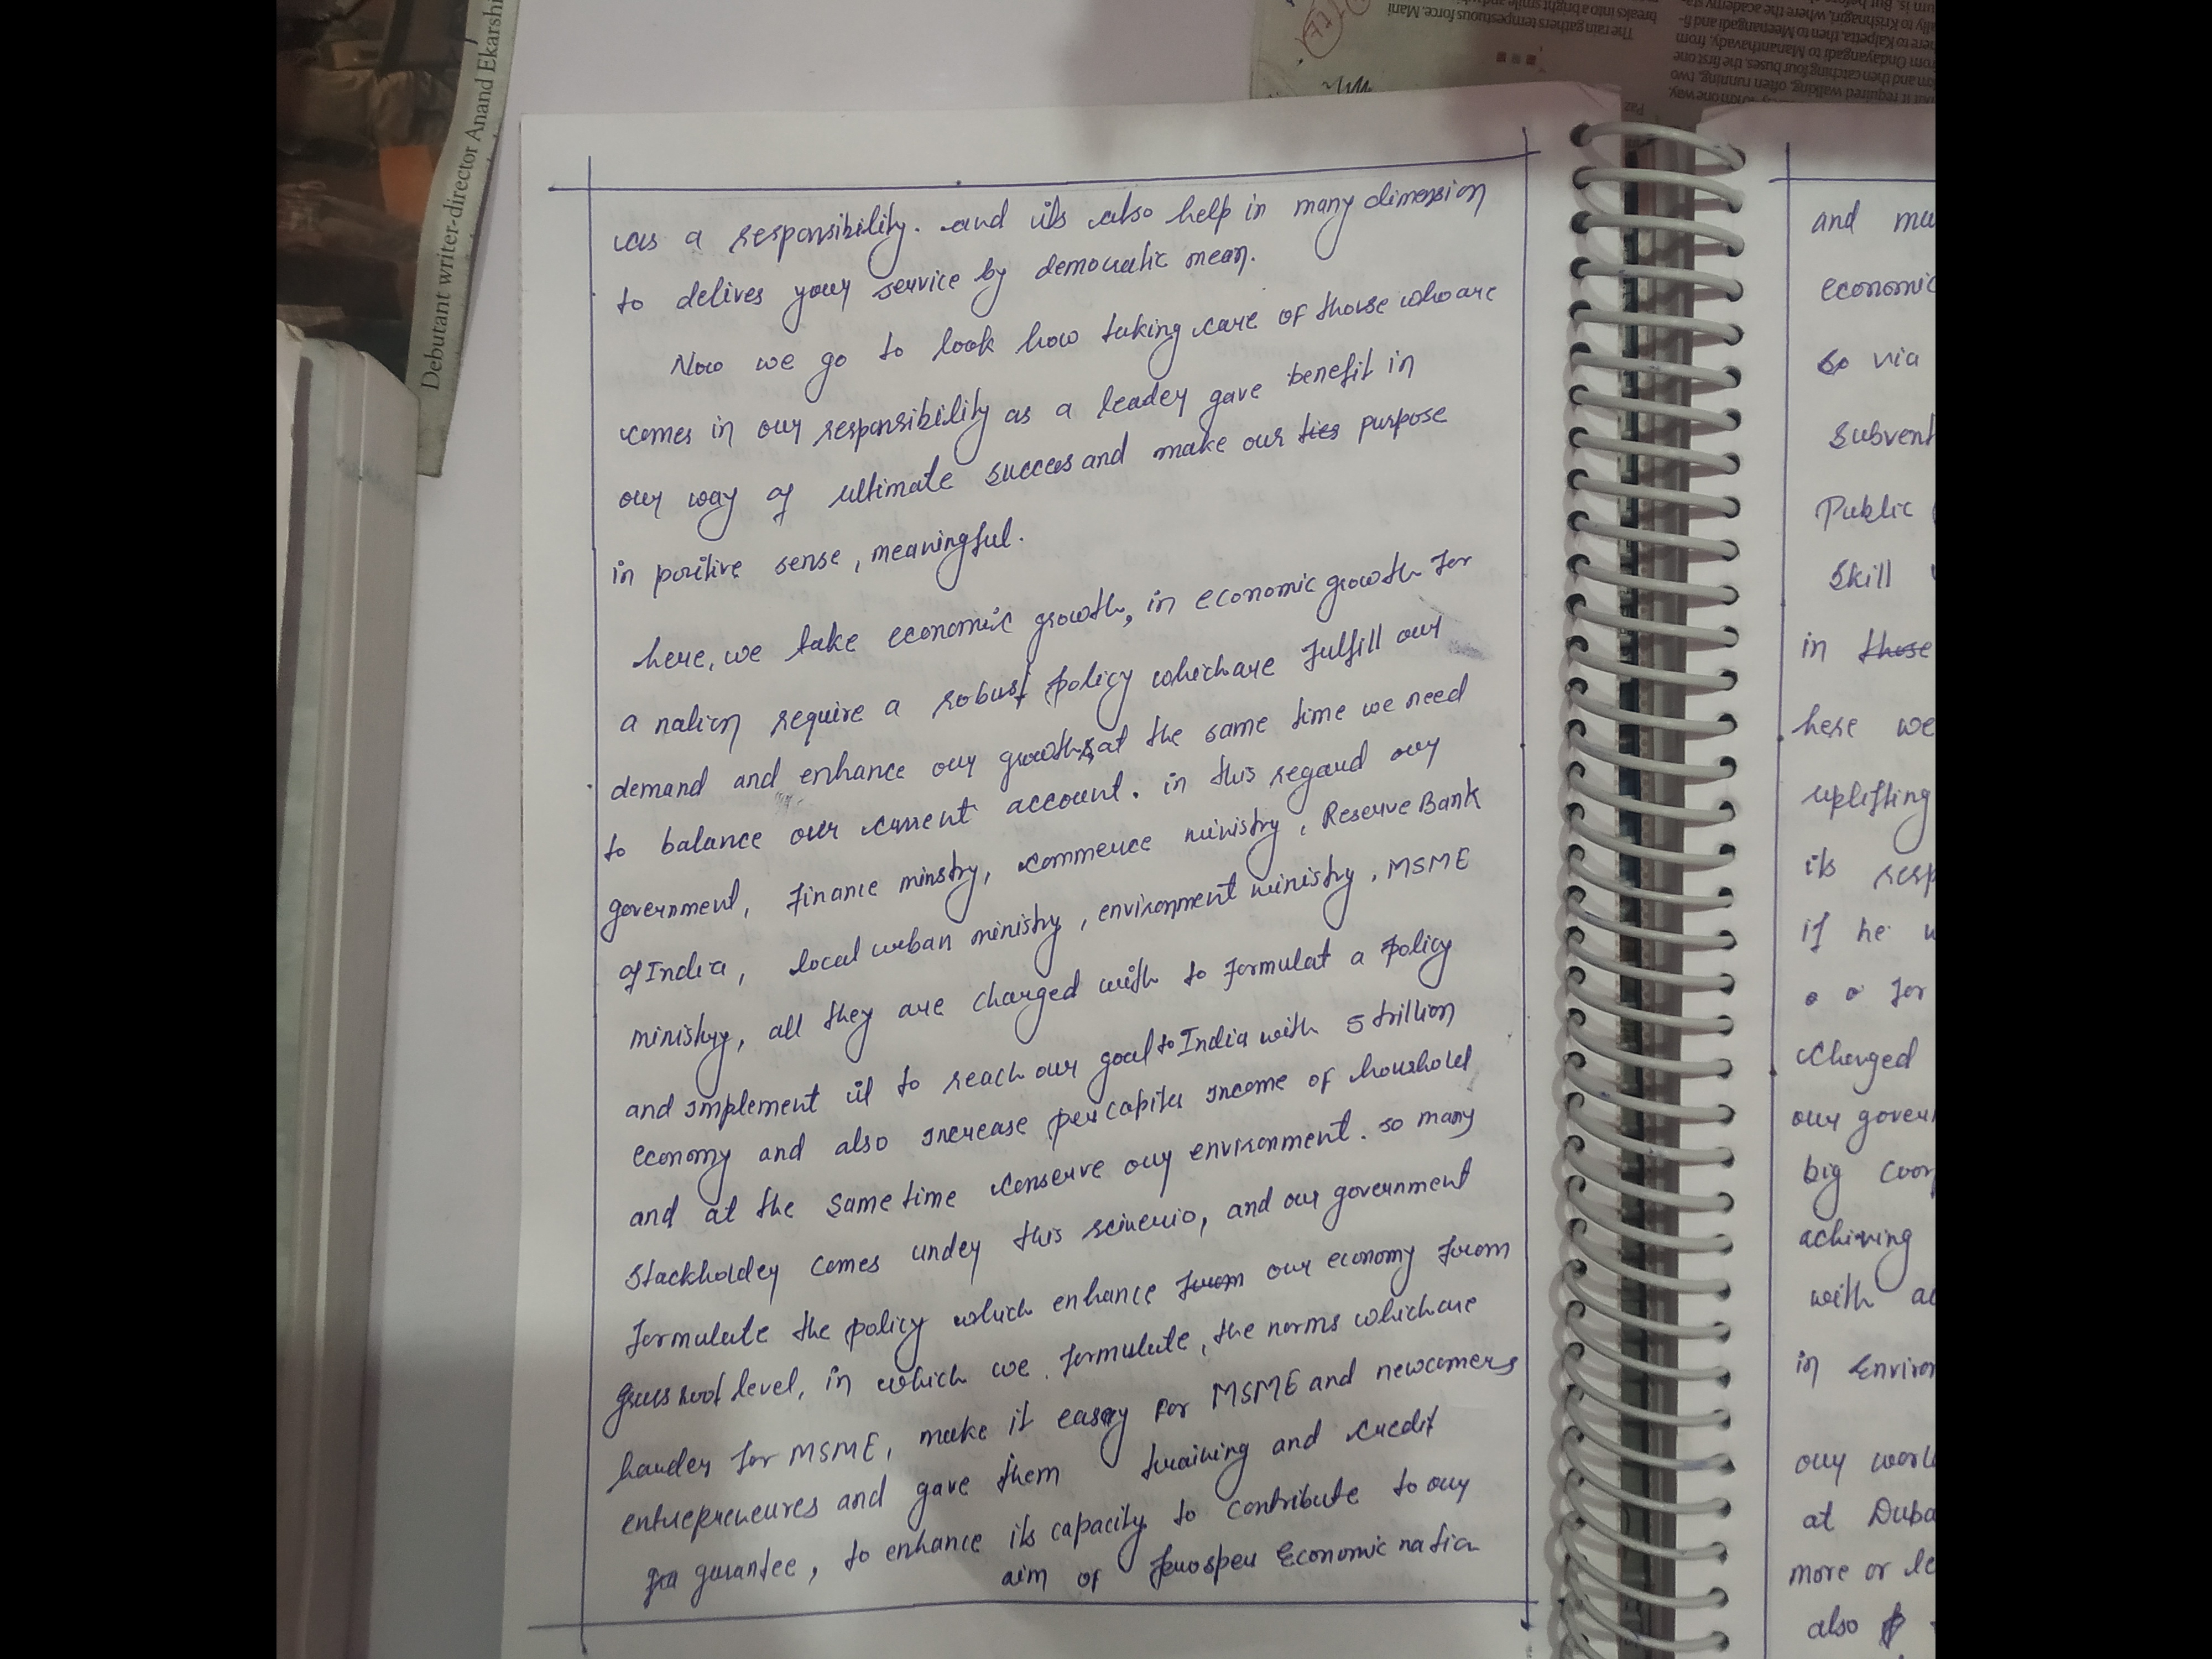 Debutant writer-director Anand Ekarshi
The rain gathers tempestuous force. Mani
breaks into a bright smile and
but it required walking, often running, two
km and then catching four buses, the first one
from Ondayangadi to Mananthavady, from
here to Kalpetta, then to Meenangadi and fi-
ally to Krishnagiri, where the academy sta-
as a responsibility. and its also help in many dimension
to delives your service by democratic mean.
Now we go to look how taking care of those who are
comes in our responsibility as a leader gave benefit in
our way of ultimate succes and make our ties purpose
in positive sense, meaningful.
here, we take economic growth, in economic growth for
a nation require a robust policy which are fulfill our
demand and enhance our growth, at the same time we need
to balance our current account. in this regard our
government, Finance minstry, commerce ministry, Reserve Bank
of India, local urban ministry, environment ministry, MSME
ministry, all they are charged with to formulat a policy
and implement it to reach our goal to India with 5 trillion
economy and also increase per capita income of houshold
and at the same time conserve our environment. so many
Stackholder comes under this scinerio, and our government
formulate the policy which enhance from our economy from
grass root level, in which we formulate, the norms which are
harder for MSME, make it easy for MSME and newcomers
entrepreneures and gave them training and credit
gurantee, to enhance its capacity to contribute to our
aim of Economic nation
and mu
economic
so via
subvent
Public
Skill
in those
here we
uplifting
its resp
if he w
for
charged
our govern
big coor
achiving
with ac
in Environ
our worl
at Duba
more or le
also